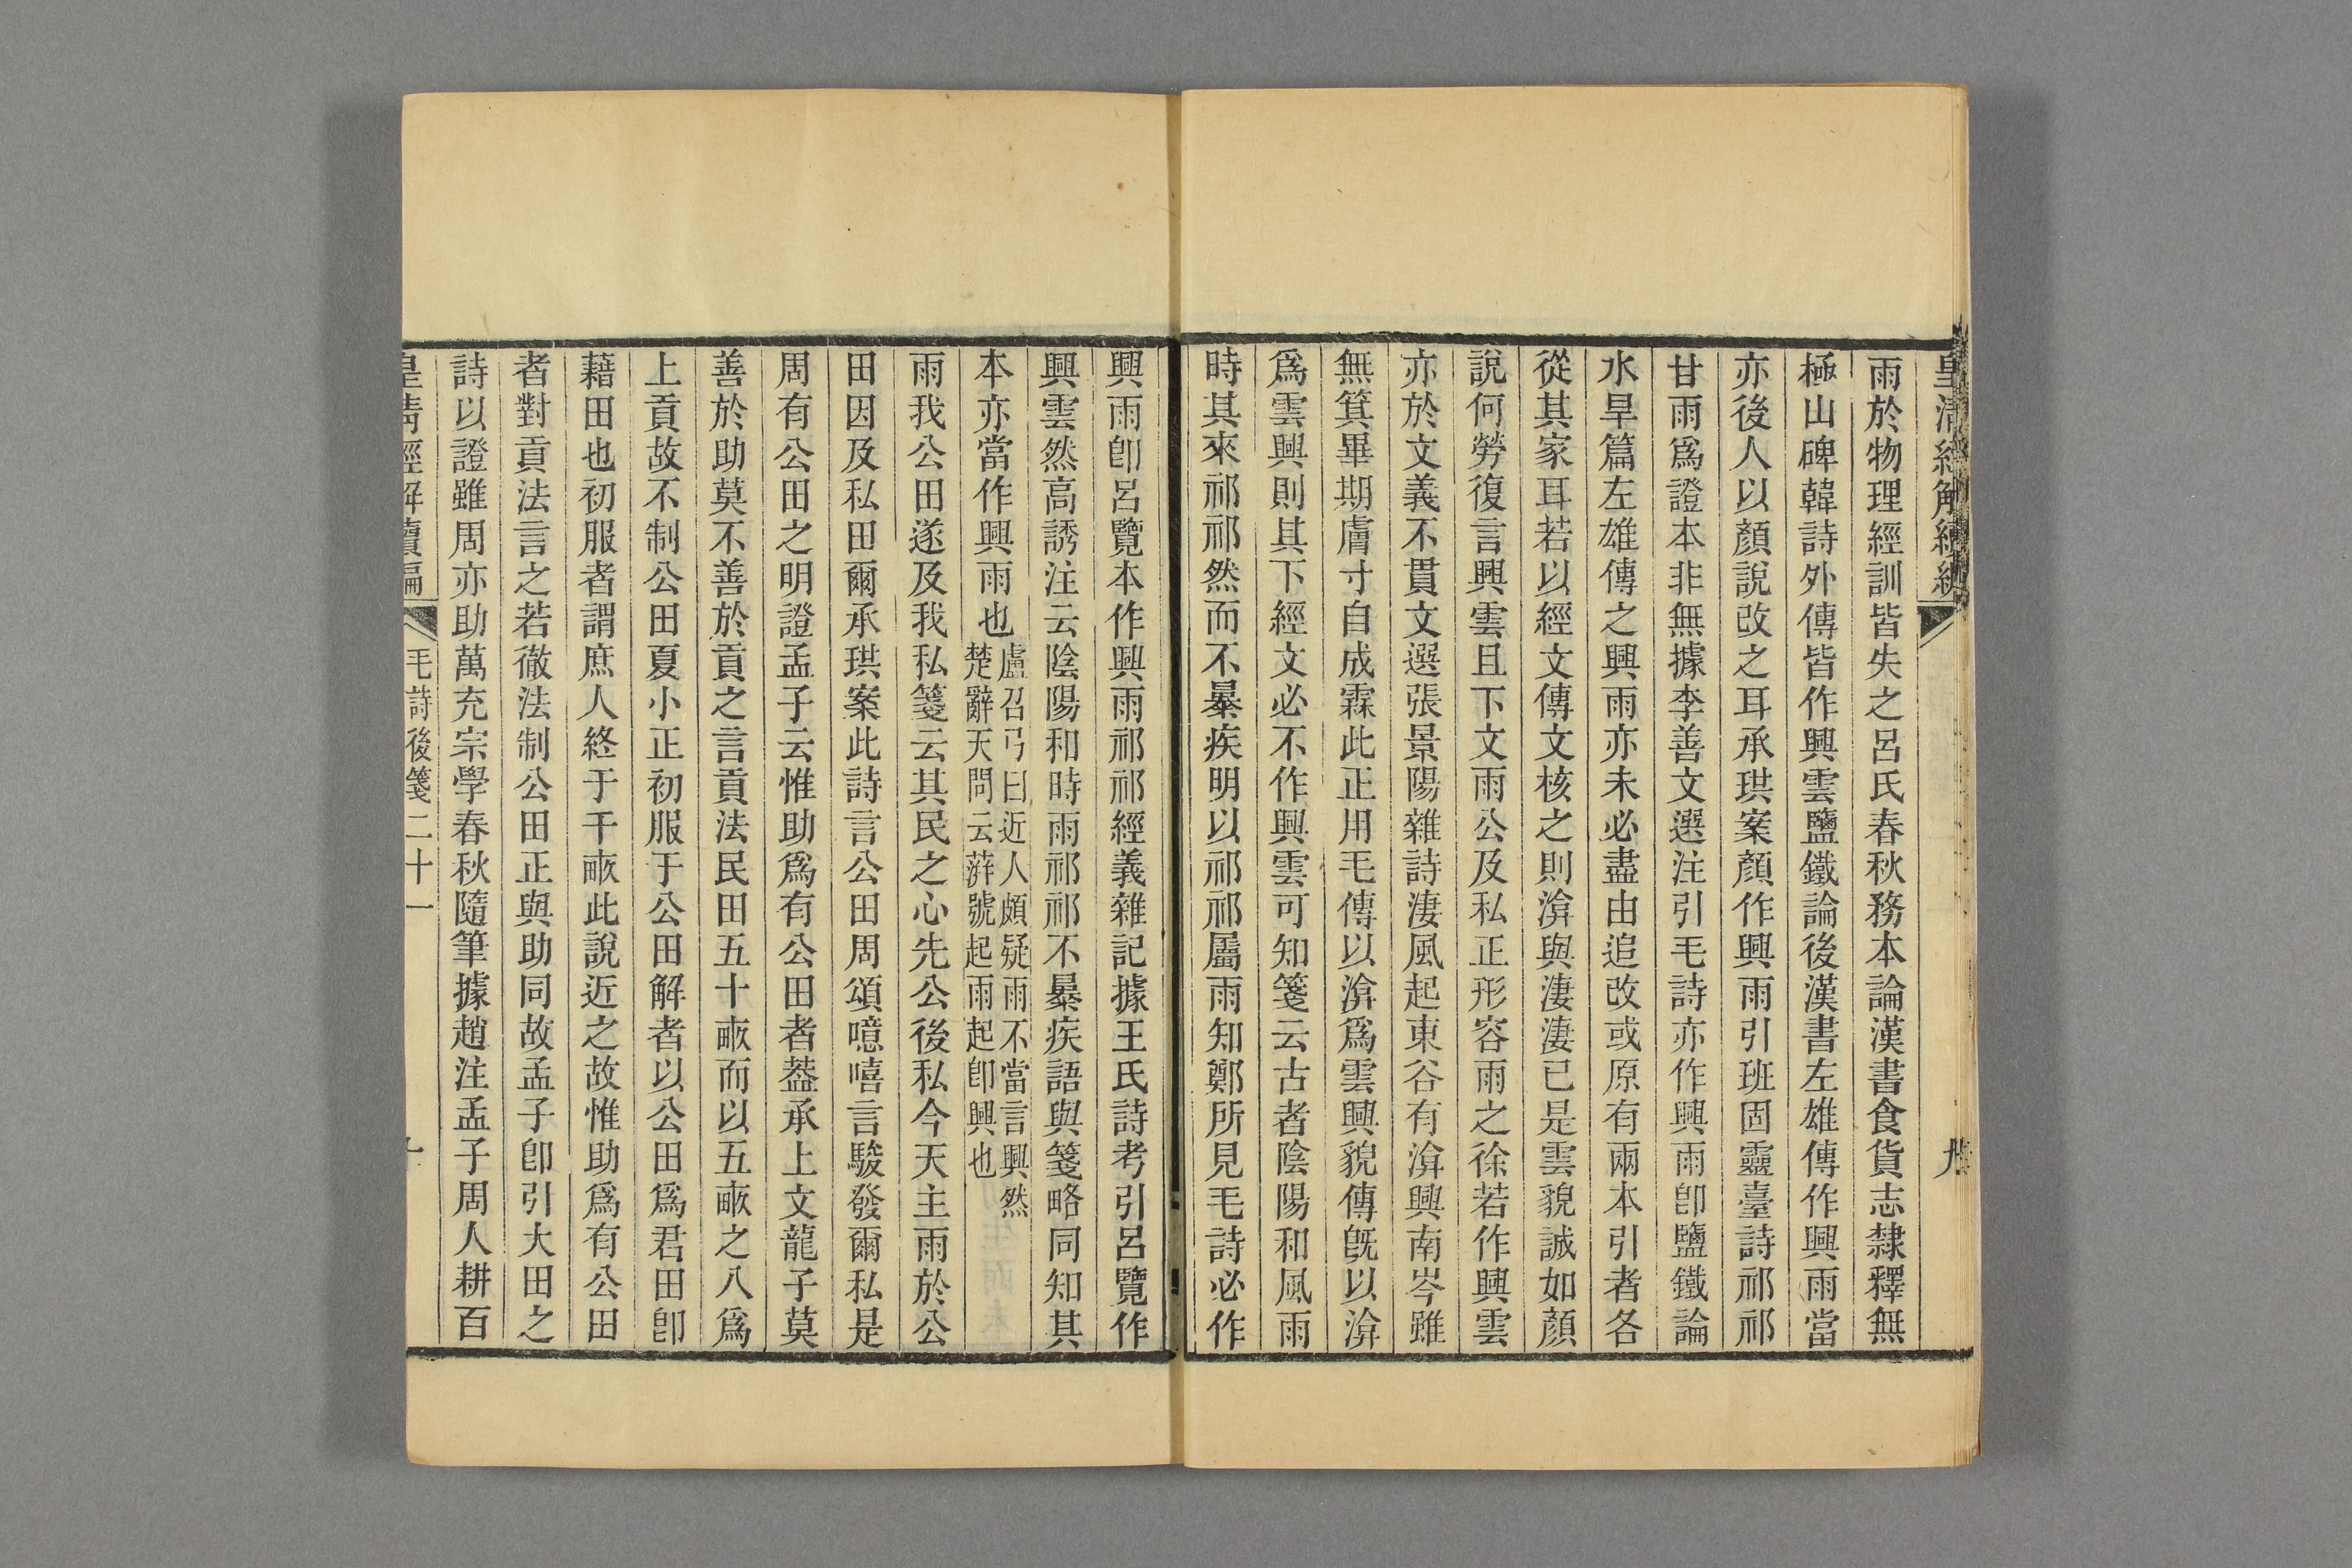 皇清經解續編
九
雨於物理經訓皆失之呂氏春秋務本論漢書食貨志隸釋無
極山碑韓詩外傳皆作興雲鹽鐵論後漢書左雄傳作興雨當
亦後人以顏說改之耳承珙案顏作興雨引班固靈臺詩祁祁
甘雨爲證本非無據李善文選注引毛詩亦作興雨卽鹽鐵論
水旱篇左雄傳之興雨亦未必盡由追改或原有兩本引者各
從其家耳若以經文傳文核之則渰與淒淒已是雲貌誠如顏
說何勞復言興雲且下文雨公及私正形容雨之徐若作興雲
亦於文義不貫文選張景陽雜詩淒風起東谷有渰興南岑雖
無箕畢期膚寸自成霖此正用毛傳以渰爲雲興貌傳旣以渰
爲雲興則其下經文必不作興雲可知箋云古者陰陽和風雨
時其來祁祁然而不暴疾明以祁祁屬雨知鄭所見毛詩必作
興雨卽呂覽本作興雨祁祁經義雜記據王氏詩考引呂覽作
興雲然高誘注云陰陽和時雨祁祁不暴疾語與箋略同知其
本亦當作興雨也
盧召弓曰近人頗疑雨不當言興然
楚辭天問云蓱號起雨起卽興也
雨我公田遂及我私箋云其民之心先公後私今天主雨於公
田因及私田爾承珙案此詩言公田周頌噫嘻言駿發爾私是
周有公田之明證孟子云惟助爲有公田者葢承上文龍子莫
善於助莫不善於貢之言貢法民田五十畞而以五畞之八爲
上貢故不制公田夏小正初服于公田解者以公田爲君田卽
藉田也初服者謂庶人終于千畞此說近之故惟助爲有公田
者對貢法言之若徹法制公田正與助同故孟子卽引大田之
詩以證雖周亦助萬充宗學春秋隨筆據趙注孟子周人耕百
皇淸經解續編
毛詩後箋二十一